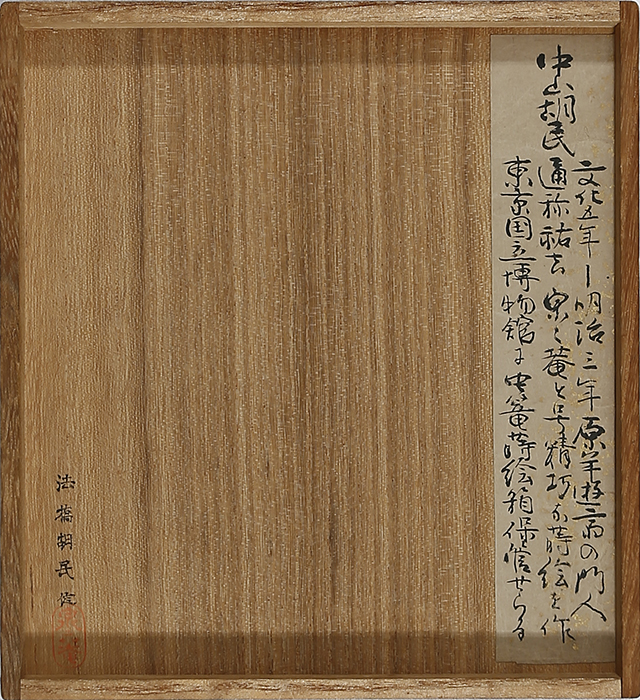 中山胡民
文化五年ー明治三年原羊遊斎の門人
通称祐吉 泉々菴と号精巧な蒔絵を作
東京国立博物館に虫篭蒔絵箱保管せらる
法橋胡民造